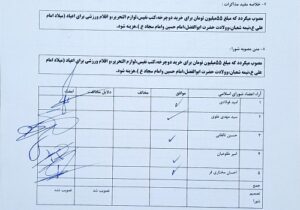 ۱- خلاصه مفید مذاکرات :
مصوب میگردد که مبلغ ۵۵میلیون تومان برای خرید دوچرخه،کتب نفیس،لوازم التحریر و اقلام ورزشی برای اعیاد (میلاد امام
علی ع،نیمه شعبان،وولادت حضرت ابوالفضل،امام حسین وامام سجاد ع )،هزینه شود.
۲- متن مصوبه شورا :
مصوب میگردد که مبلغ ۵۵میلیون تومان برای خرید دوچرخه،کتب نفیس،لوازم التحریر و اقلام ورزشی برای اعیاد (میلاد امام
علی ع،نیمه شعبان،وولادت حضرت ابوالفضل،امام حسین وامام سجاد ع )،هزینه شود.
آراء اعضاء شورای اسلامی موافق مخالف دلایل مخالف امضاء
۱ امید فولادی
۲ سید مهدی علوی
۳ حسین
۴ امیر
۵ احسان مختاری
جمع
تصمیم شورا تصویب شد تصویب نشد